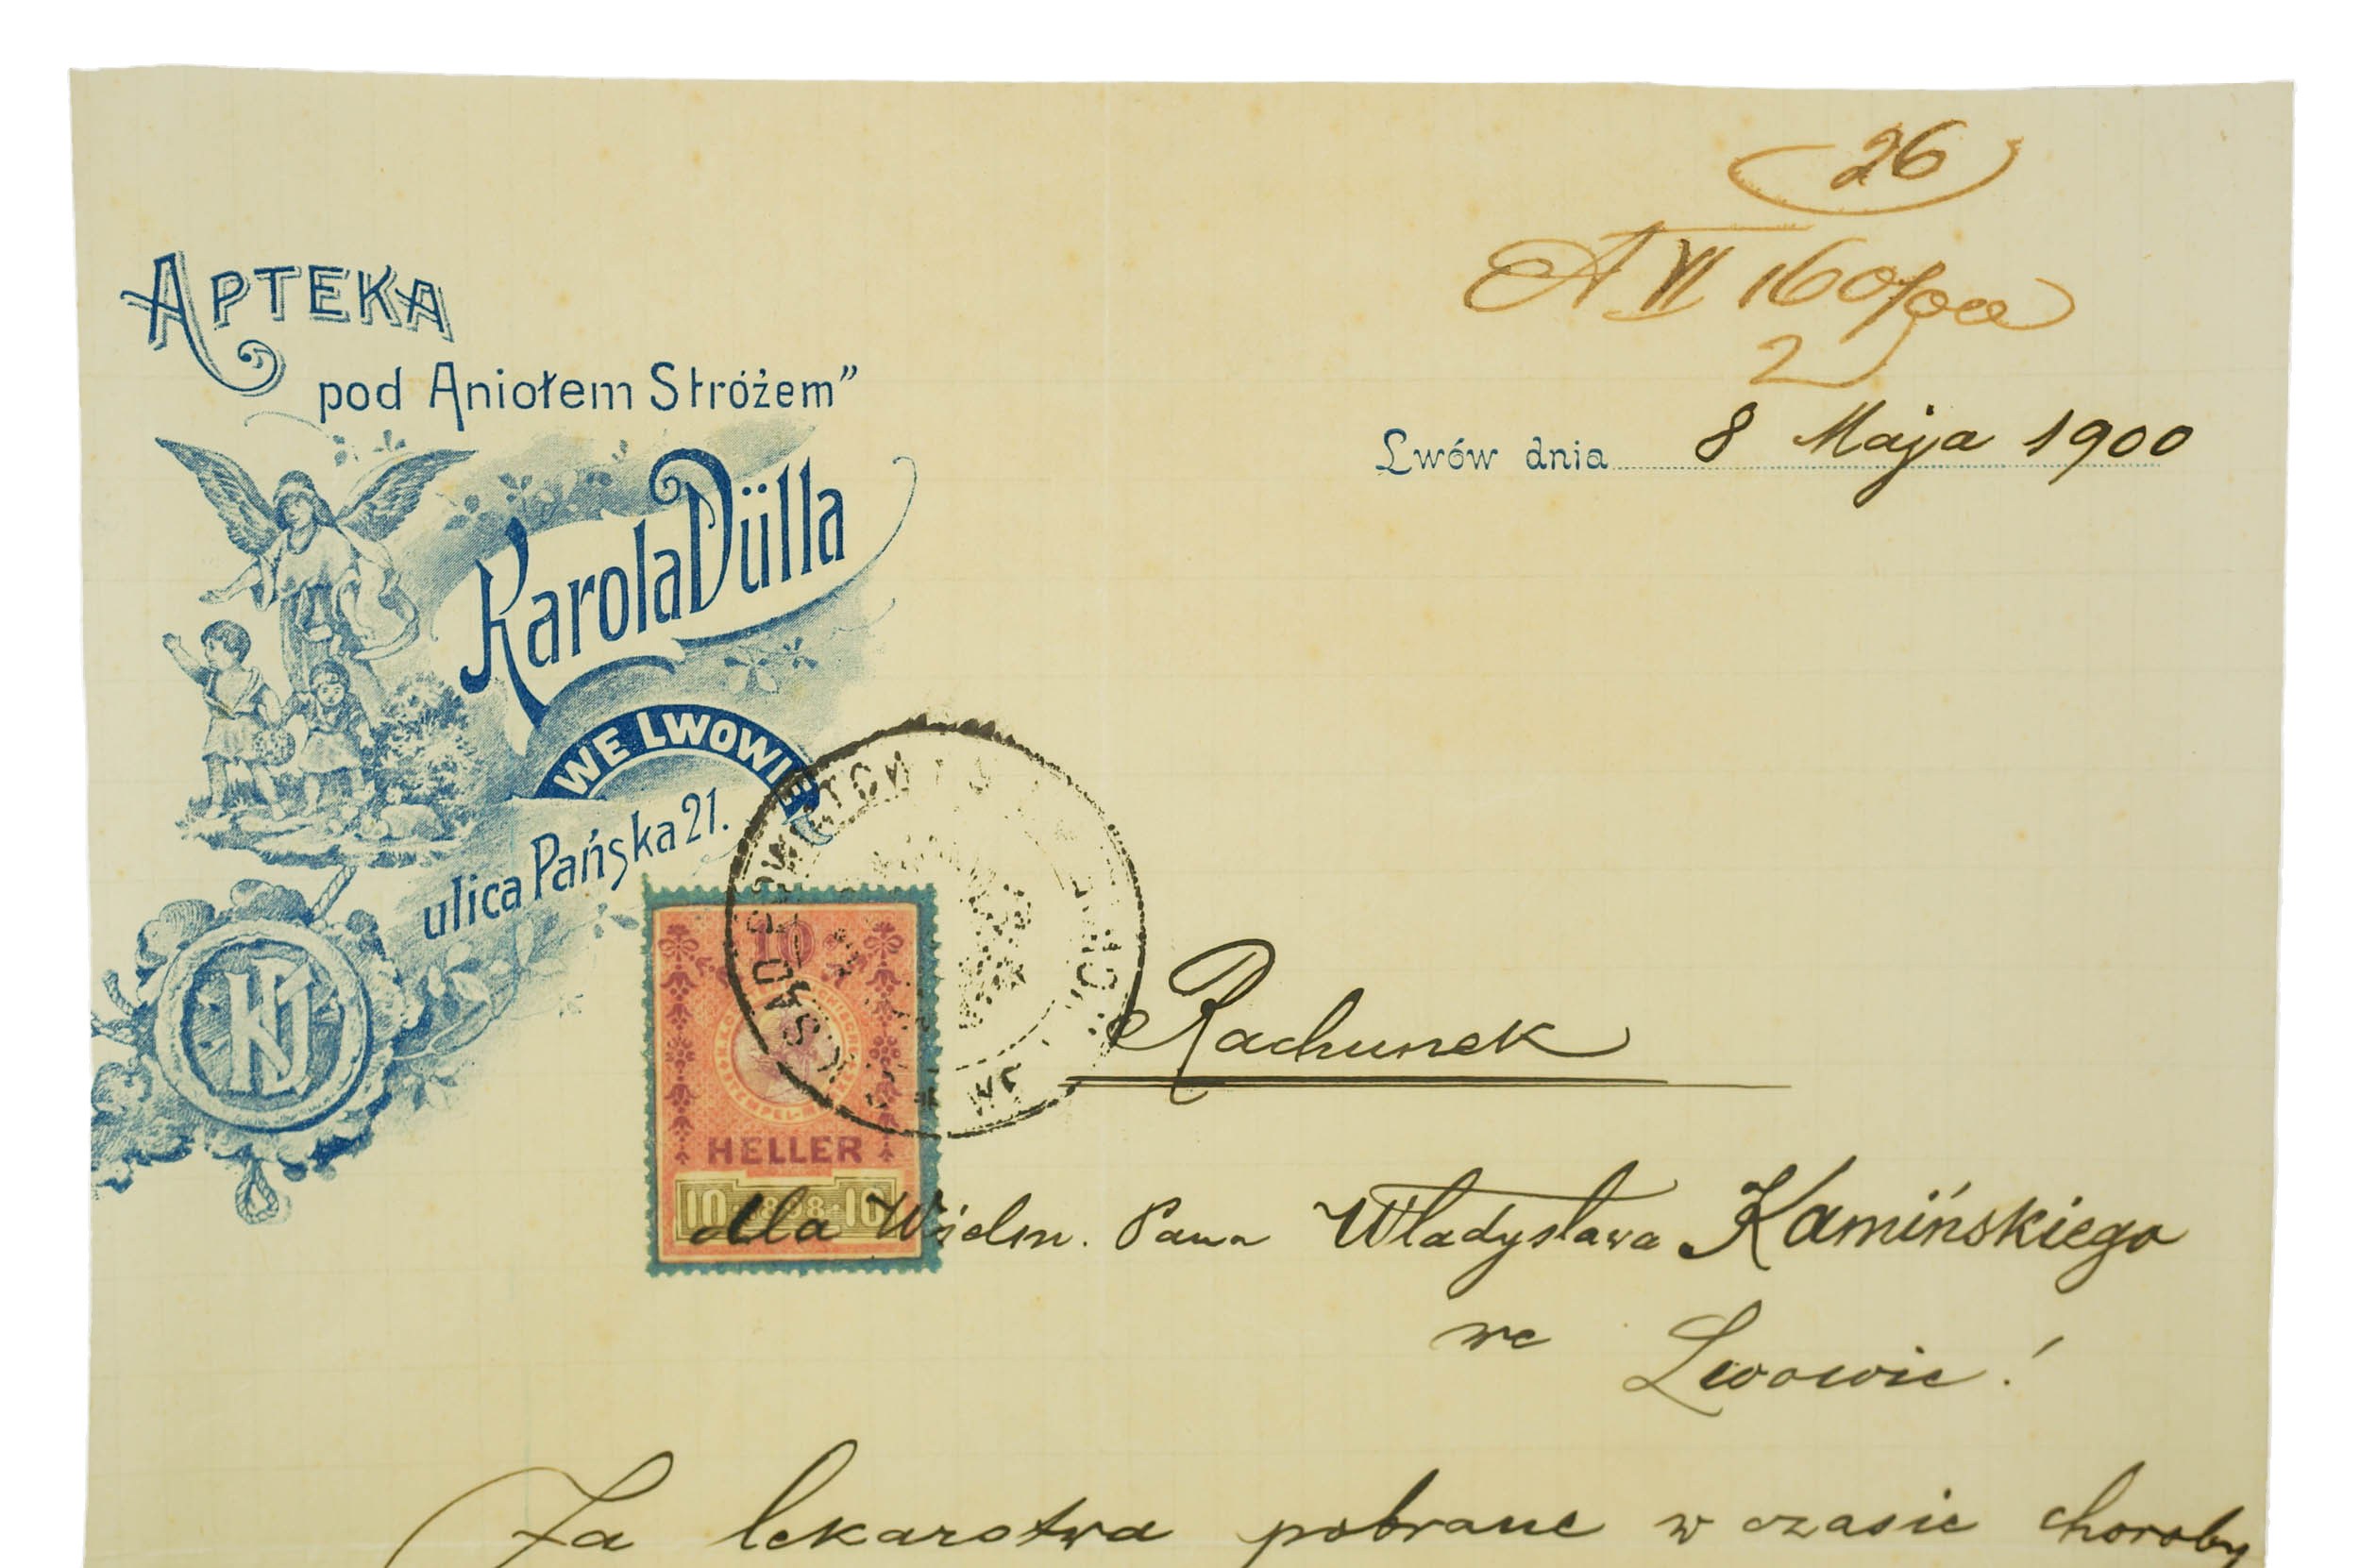 26
A VI 160/00
2
APTEKA
pod Aniołem Stróżem”
Karola Dülla
WE LWOWIE
ulica Pańska 21.
Lwów dnia 8 Maja 1900
10
HELLER
10 1898 10
Rachunek
dla Wielm. Pana Władysława Kamińskiego
we Lwowie!
Za lekarstwa pobrane w czasie choroby